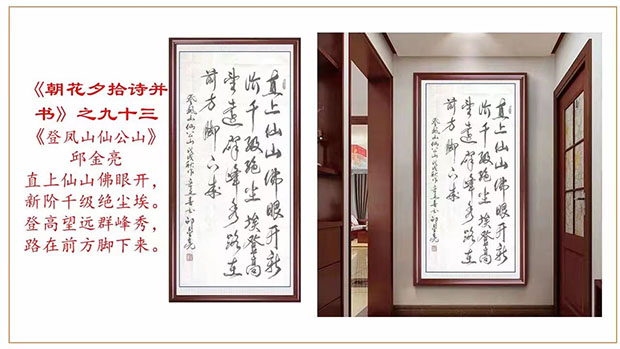 《朝花夕拾诗并
书》之九十三
《登凤山仙公山》
邱金亮
直上仙山佛眼开，
新阶千级绝尘埃。
登高望远群峰秀，
路在前方脚下来。
直上仙山佛眼开新
阶千级绝尘埃登高
望远群峰秀路在
前方脚下来
登凤山仙公山 邱金亮
直上仙山佛眼开新
阶千级绝尘埃登高
望远群峰秀路在
前方脚下来
登凤山仙公山 邱金亮